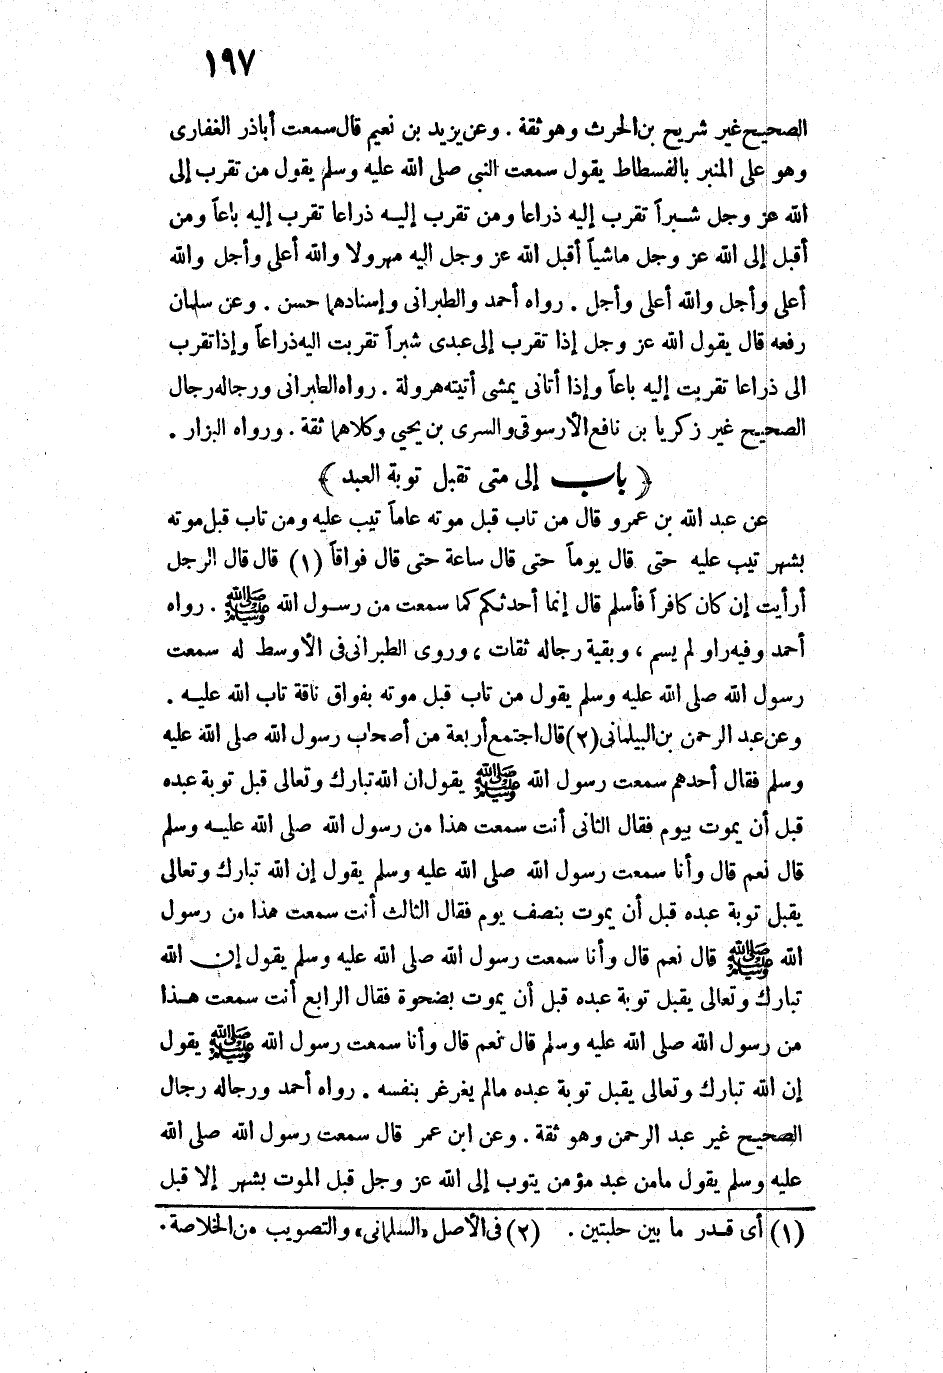 ١٩٧
الصحيح غير شريح بن الحرث وهو ثقة . وعن يزيد بن نعيم قال سمعت أباذر الغفارى
وهو على المنبر بالفسطاط يقول سمعت النبى صلى الله عليه وسلم يقول من تقرب إلى
الله عز وجل شبراً تقرب إليه ذراعا ومن تقرب إليه ذراعا تقرب إليه باعاً ومن
أقبل إلى الله عز وجل ماشياً أقبل الله عز وجل اليه مهرولا والله أعلى وأجل والله
أعلى وأجل والله أعلى وأجل . رواه أحمد والطبرانى وإسنادهما حسن . وعن سلمان
رفعه قال يقول الله عز وجل إذا تقرب إلى عبدى شبراً تقربت اليه ذراعاً وإذا تقرب
الى ذراعا تقربت إليه باعاً وإذا أتانى يمشى أتيته هرولة . رواه الطبرانى ورجاله رجال
الصحيح غير زكريا بن نافع الأرسوفى والسرى بن يحيى وكلاهما ثقة . ورواه البزار .
﴿ باب إلى متى تقبل توبة العبد ﴾
عن عبد الله بن عمرو قال من تاب قبل موته عاماً تيب عليه ومن تاب قبل موته
بشهر تيب عليه حتى قال يوماً حتى قال ساعة حتى قال فواقاً (١) قال قال الرجل
أرأيت إن كان كافراً فأسلم قال إنما أحدثكم كما سمعت من رسول الله ﷺ . رواه
أحمد وفيه راو لم يسم ، وبقية رجاله ثقات ، وروى الطبرانى فى الأوسط له سمعت
رسول الله صلى الله عليه وسلم يقول من تاب قبل موته بفواق ناقة تاب الله عليه .
وعن عبد الرحمن بن البيلمانى (٢) قال اجتمع أربعة من أصحاب رسول الله صلى الله عليه
وسلم فقال أحدهم سمعت رسول الله ﷺ يقول ان الله تبارك وتعالى قبل توبة عبده
قبل أن يموت بيوم فقال الثانى أنت سمعت هذا من رسول الله صلى الله عليه وسلم
قال نعم قال وأنا سمعت رسول الله صلى الله عليه وسلم يقول إن الله تبارك وتعالى
يقبل توبة عبده قبل أن يموت بنصف يوم فقال الثالث أنت سمعت هذا من رسول
الله ﷺ قال نعم قال وأنا سمعت رسول الله صلى الله عليه وسلم يقول إن الله
تبارك وتعالى يقبل توبة عبده قبل أن يموت بضحوة فقال الرابع أنت سمعت هذا
من رسول الله صلى الله عليه وسلم قال نعم قال وأنا سمعت رسول الله ﷺ يقول
إن الله تبارك وتعالى يقبل توبة عبده مالم يغرغر بنفسه . رواه أحمد ورجاله رجال
الصحيح غير عبد الرحمن وهو ثقة . وعن ابن عمر قال سمعت رسول الله صلى الله
عليه وسلم يقول مامن عبد مؤمن يتوب إلى الله عز وجل قبل الموت بشهر إلا قبل
(١) أى قدر ما بين حلبتين . (٢) فى الأصل «السلمانى» والتصويب من الخلاصة .